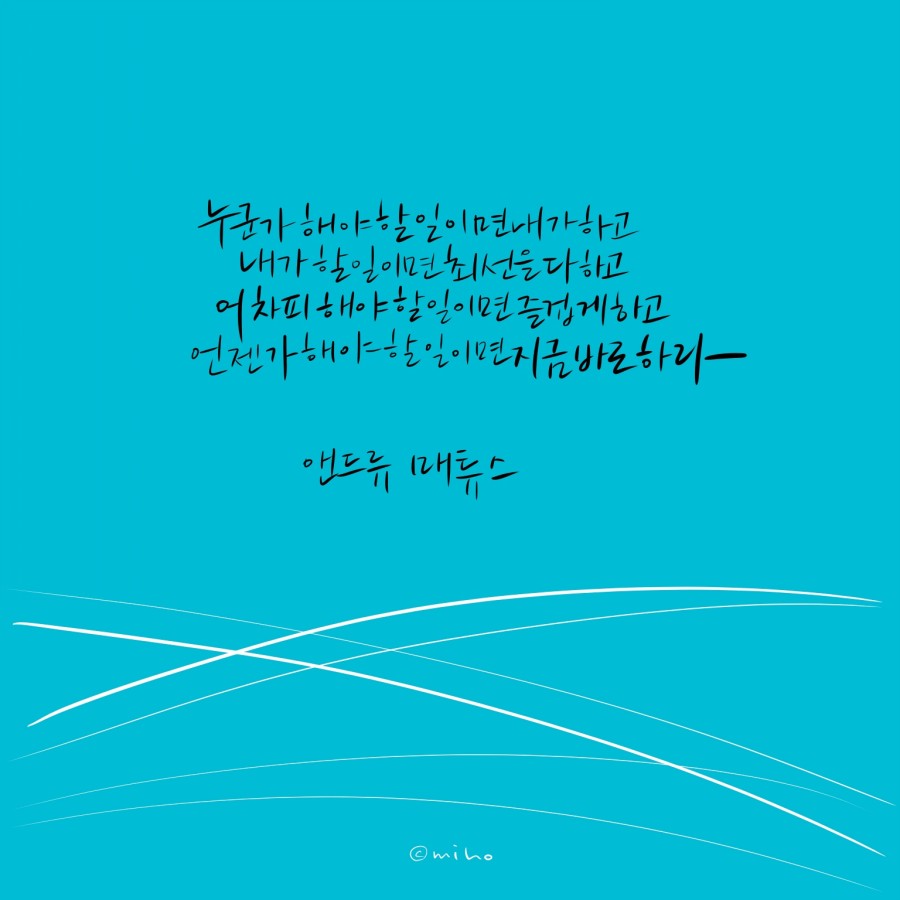 누군가 해야 할 일이면 내가 하고
내가 할 일이면 최선을 다하고
어차피 해야 할 일이면 즐겁게 하고
언젠가 해야 할 일이면 지금 바로 하라
앤드류 매튜스
©miho